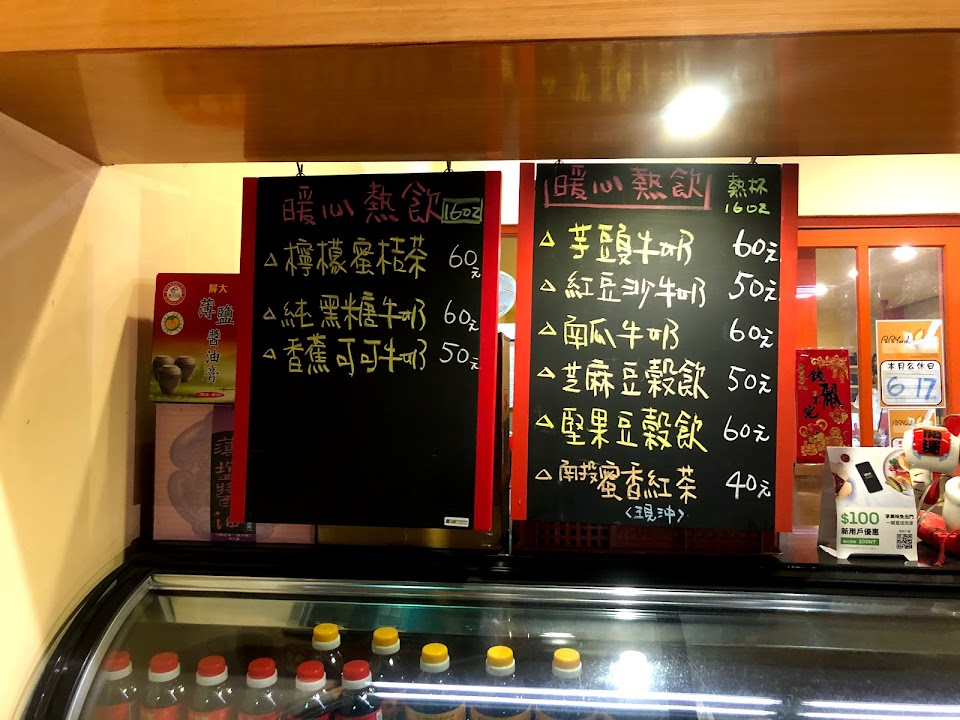 暖心熱飲 16OZ
△檸檬蜜桔茶 60元
△純黑糖牛奶 60元
△香蕉可可牛奶 50元
暖心熱飲 熱杯
16OZ
△芋頭牛奶 60元
△紅豆沙牛奶 50元
△南瓜牛奶 60元
△芝麻豆穀飲 50元
△堅果豆穀飲 60元
△南投蜜香紅茶 40元
(現沖)
屏大
薄鹽
醬油膏
本月公休日
6 17
$100
新用戶優惠